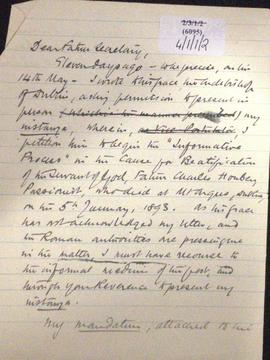 2/3/1/2
(6095)
4/1/1/2
Dear Father Secretary,
Eleven Days ago - to be precise, on the
14th May - I wrote to his Grace the Archbishop
of Dublin, asking permission to present in
person my
instanza, wherein, I
petition him to begin the "Informative
Process" in the Cause for Beatification
of the Servant of God, Father Charles Houben,
Passionist, who died at Mt Argus, Dublin,
on the 5th January, 1893. As his Grace
has not acknowledged my letter, and
the Roman authorities are pressing me
in the matter, I must have recourse to
the informal medium of the post, and
through your Reverence to present my
instanza.
My mandatum, attached to the